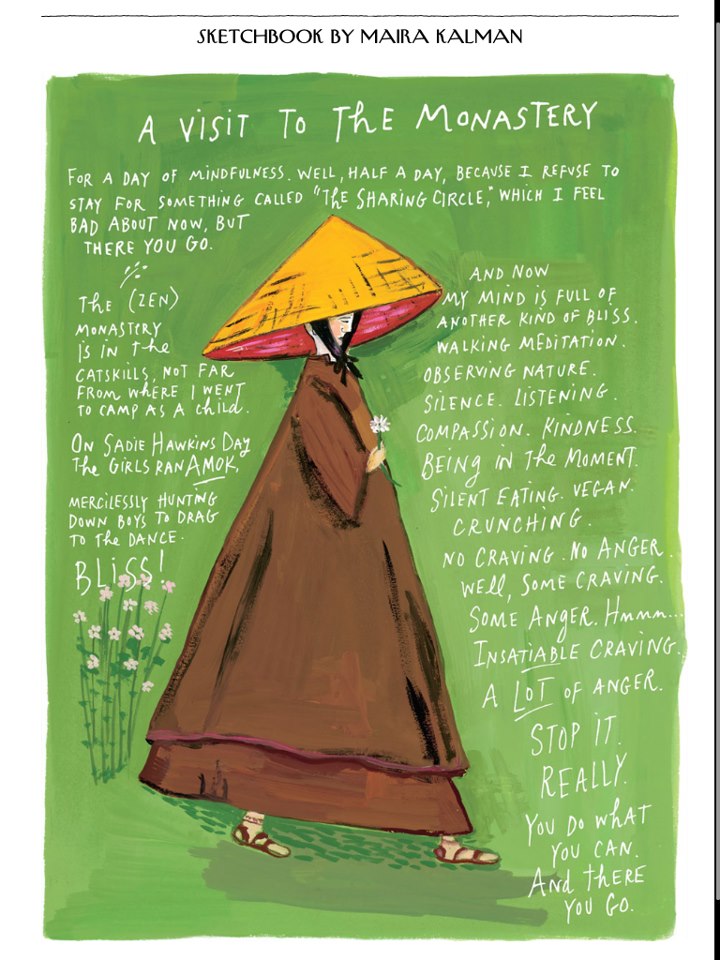 SKETCHBOOK BY MAIRA KALMAN
A VISIT TO THE MONASTERY
FOR A DAY OF MINDFULNESS. WELL, HALF A DAY, BECAUSE I REFUSE TO
STAY FOR SOMETHING CALLED "THE SHARING CIRCLE," WHICH I FEEL
BAD ABOUT NOW, BUT
THERE YOU GO.
THE (ZEN)
MONASTERY
IS IN THE
CATSKILLS, NOT FAR
FROM WHERE I WENT
TO CAMP AS A CHILD.
ON SADIE HAWKINS DAY
THE GIRLS RAN AMOK,
MERCILESSLY HUNTING
DOWN BOYS TO DRAG
TO THE DANCE.
BLISS!
AND NOW
MY MIND IS FULL OF
ANOTHER KIND OF BLISS.
WALKING MEDITATION.
OBSERVING NATURE.
SILENCE. LISTENING.
COMPASSION. KINDNESS.
BEING IN THE MOMENT.
SILENT EATING. VEGAN.
CRUNCHING.
NO CRAVING. NO ANGER.
WELL, SOME CRAVING.
SOME ANGER. HMMM...
INSATIABLE CRAVING.
A LOT OF ANGER.
STOP IT.
REALLY.
YOU DO WHAT
YOU CAN.
AND THERE
YOU GO.